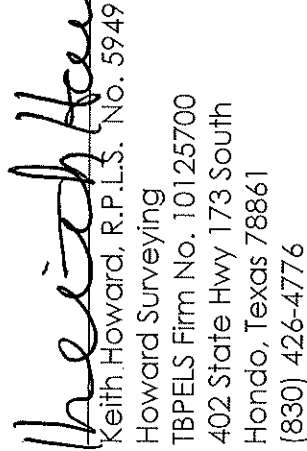 Keith How
Keith Howard, R.P.L.S. No. 5949
Howard Surveying
TBPELS Firm No. 10125700
402 State Hwy 173 South
Hondo, Texas 78861
(830) 426-4776